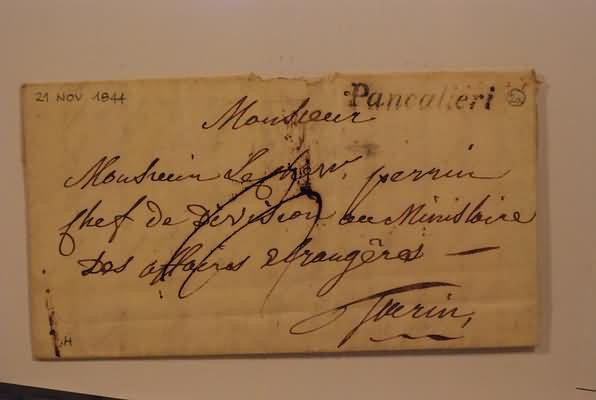 21 NOV 1844
Pancalieri
Monsieur
Monsieur Le perrin
Chef de Division au Ministaire
Des affaires etrangêres —
Turin,
H